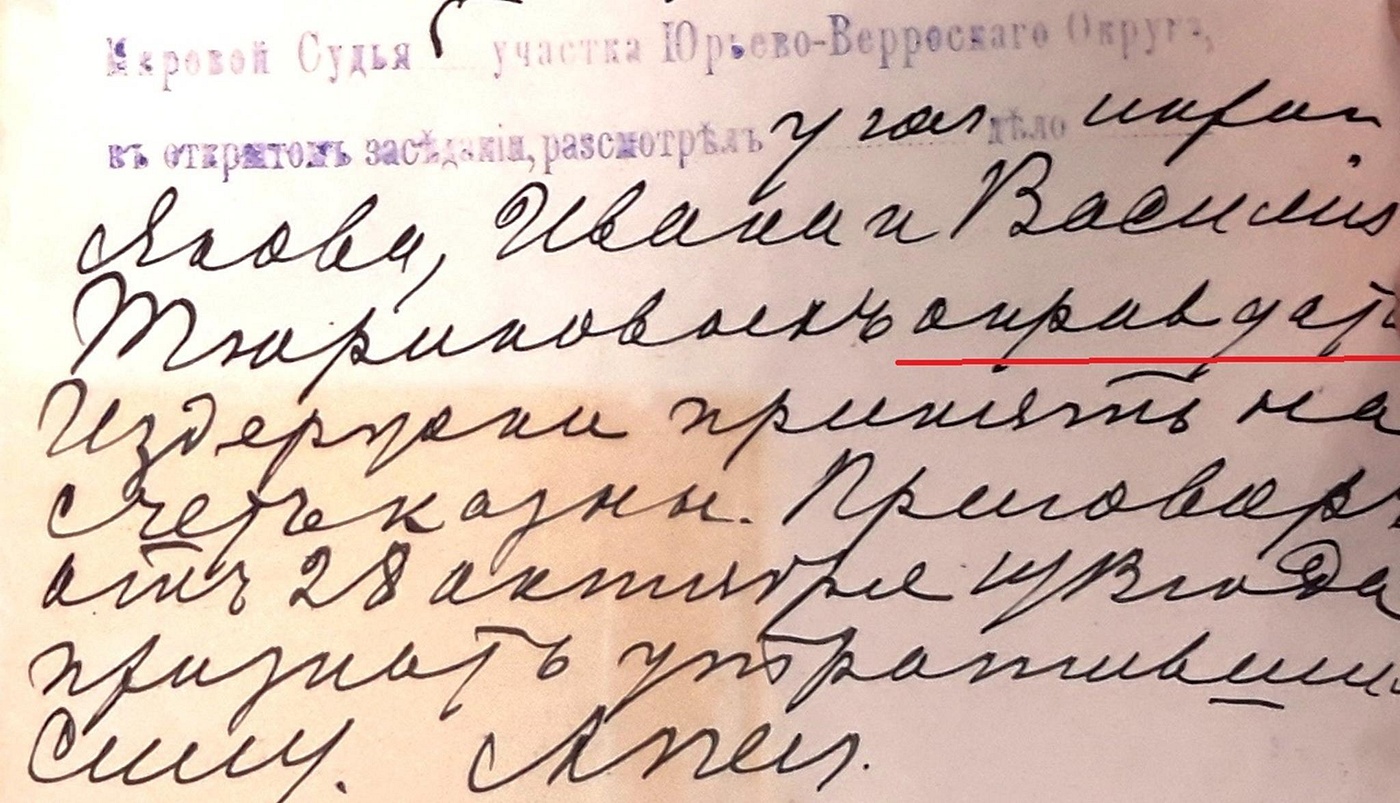 Мировой Судья участка Юрьево-Верроскаго Округа,
въ открытомъ засѣданіи, разсмотрѣлъ угол дѣло
Якова, Ивана и Василія
Тюриковыхъ оправдать
Издержки принять на
счетъ казны. Приговоръ
отъ 28 октября года
признать утратившим
силу.